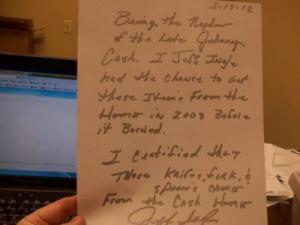 2-13-12
Being the Nephew
of the late Johnny
Cash. I Jeff
had the chance to get
these Item's From the
Home in 2003 Before
it Burned.
I certified they
These Knifes, fork, &
spoon's came
From the Cash Home